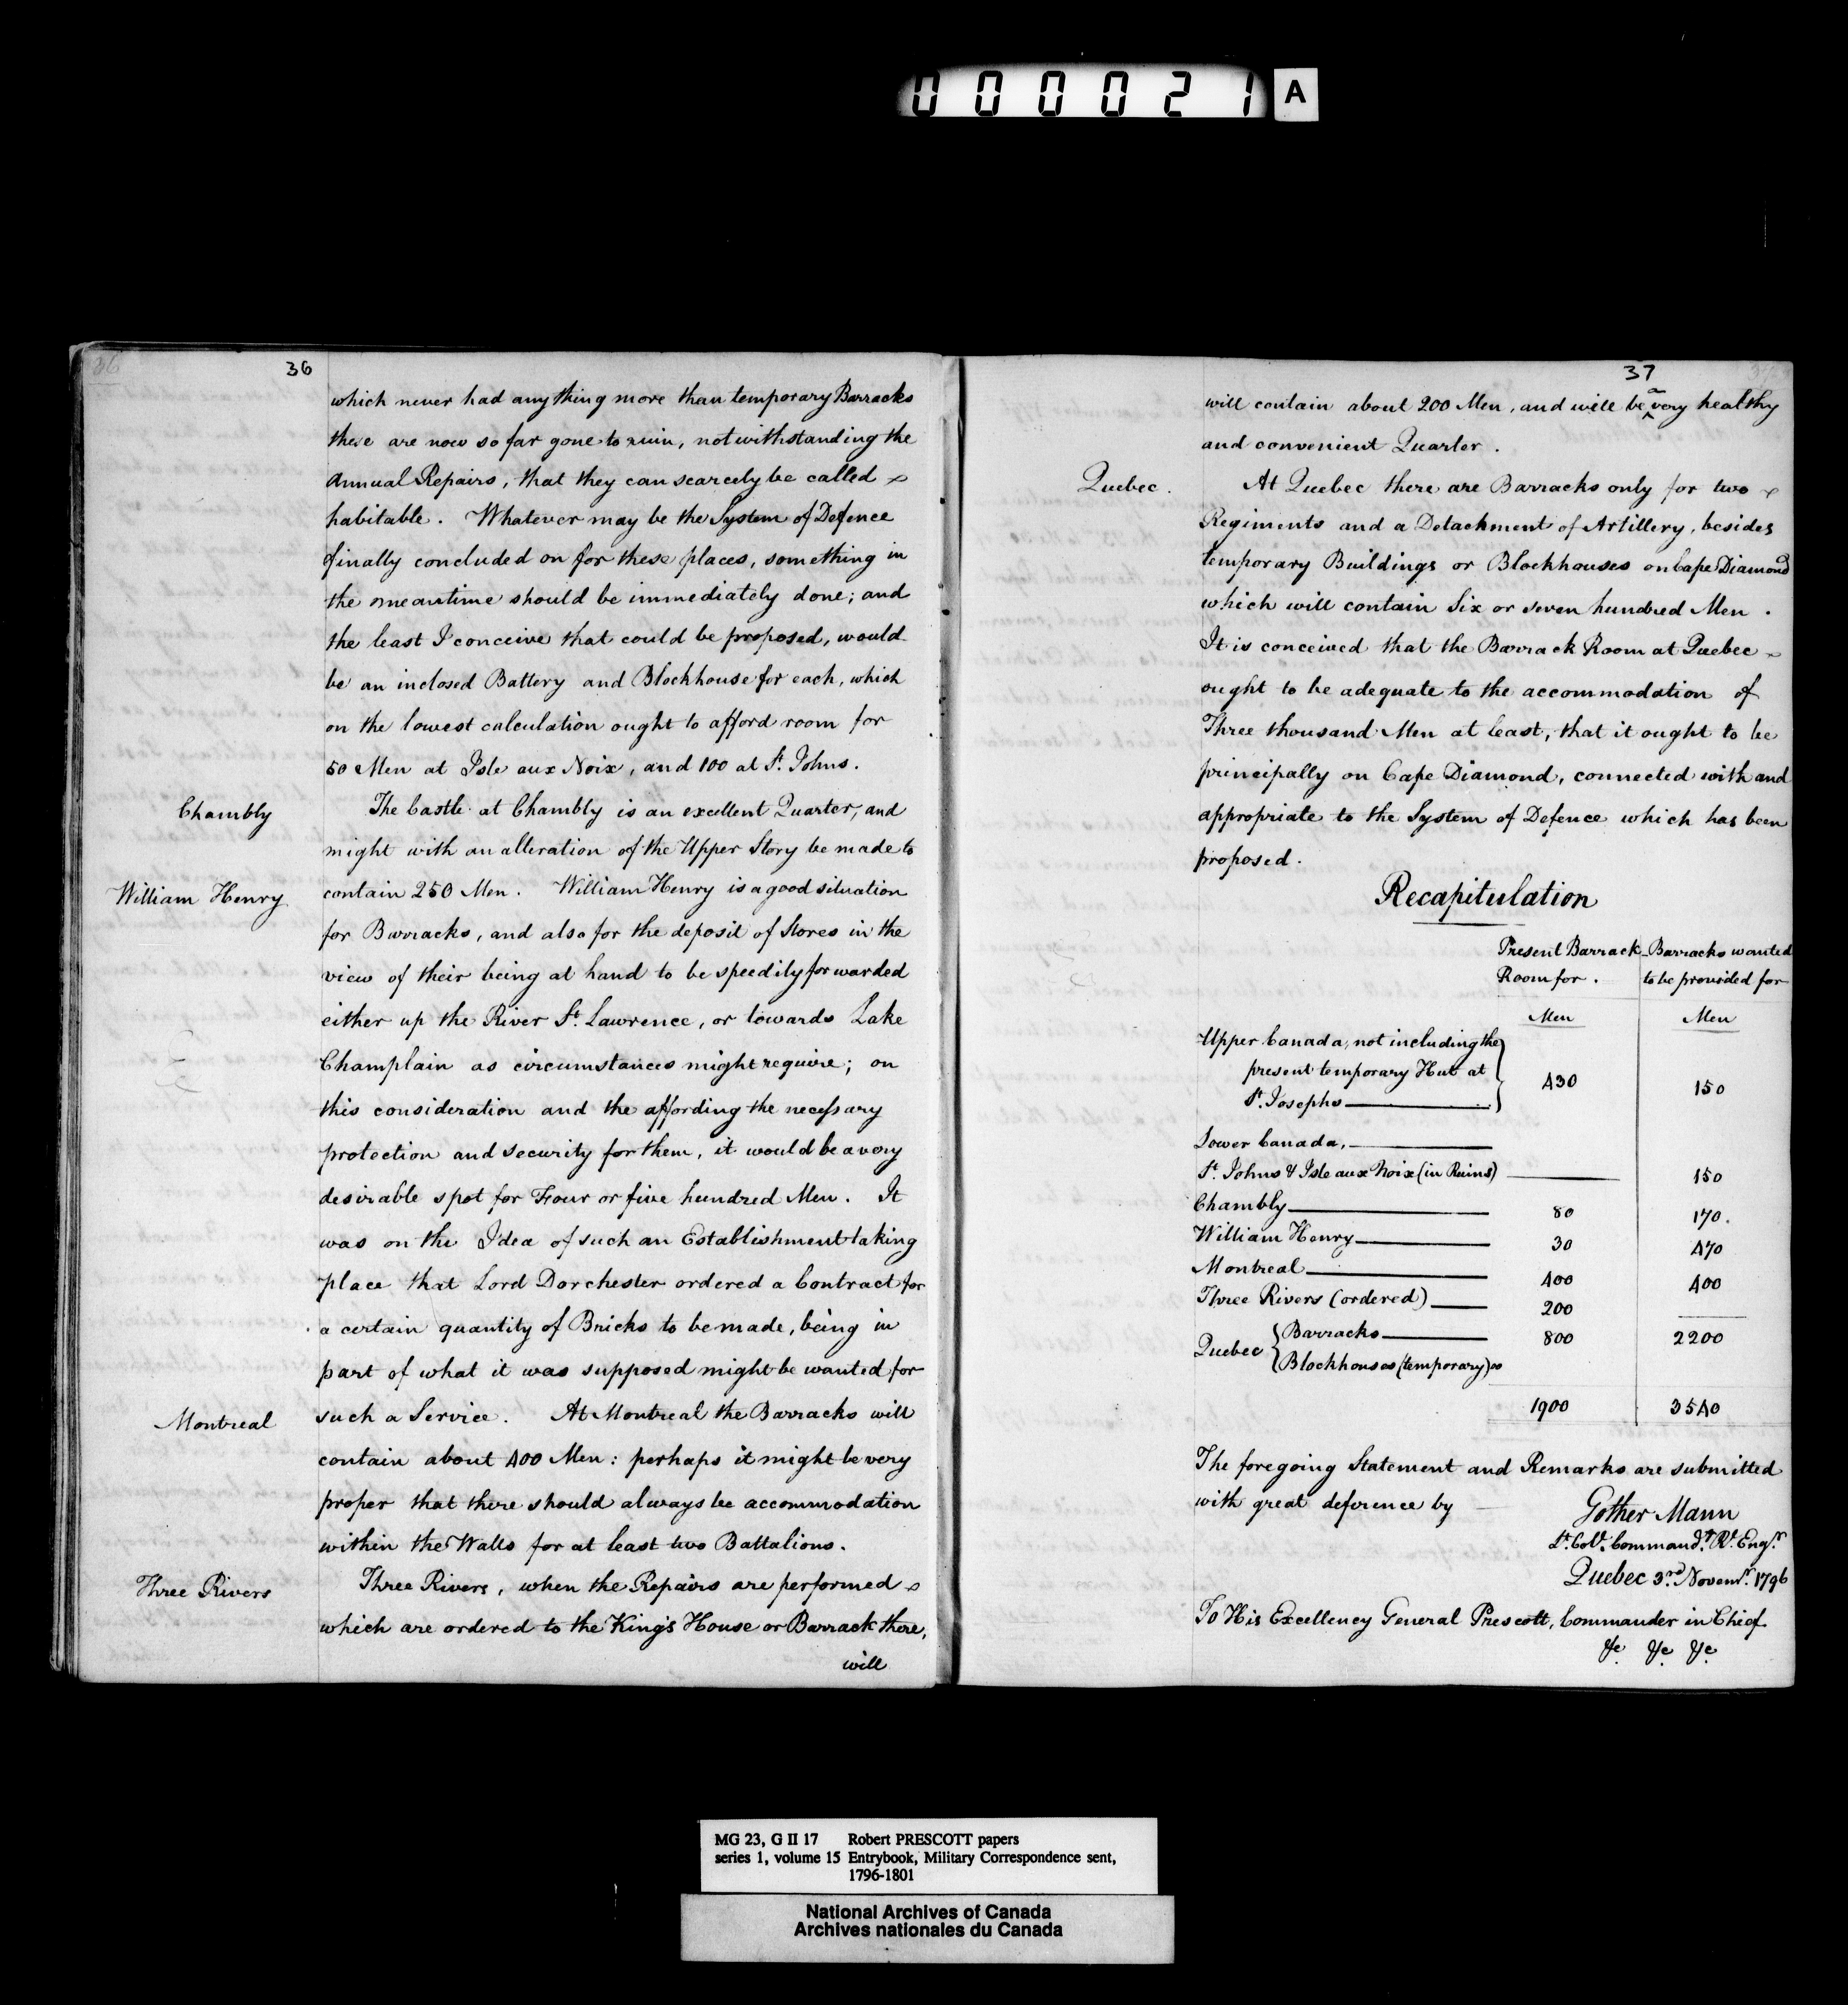 000021 A
36
which never had any thing more than temporary Barracks
these are now so far gone to ruin, notwithstanding the
Annual Repairs, that they can scarcely be called
habitable. Whatever may be the System of Defence
finally concluded on for these places, something in
the meantime should be immediately done; and
the least I conceive that could be proposed, would
be an inclosed Battery and Blockhouse for each, which
on the lowest calculation ought to afford room for
50 Men at Isle aux Noix, and 100 at St. Johns.
Chambly
The Castle at Chambly is an excellent Quarter, and
might with an alteration of the Upper Story be made to
William Henry
contain 250 Men. William Henry is a good situation
for Barracks, and also for the deposit of Stores in the
view of their being at hand to be speedily forwarded
either up the River St. Lawrence, or towards Lake
Champlain as circumstances might require; on
this consideration and the affording the necessary
protection and security for them, it would be a very
desirable spot for Four or five hundred Men. It
was on the Idea of such an Establishment taking
place that Lord Dorchester ordered a Contract for
a certain quantity of Bricks to be made, being in
part of what it was supposed might be wanted for
Montreal
such a Service. At Montreal the Barracks will
contain about 400 Men: perhaps it might be very
proper that there should always be accommodation
within the Walls for at least two Battalions.
Three Rivers
Three Rivers, when the Repairs are performed
which are ordered to the King's House or Barrack there,
will
37
will contain about 200 Men, and will be a very healthy
and convenient Quarter.
Quebec.
At Quebec there are Barracks only for two
Regiments and a Detachment of Artillery, besides
temporary Buildings or Blockhouses on Cape Diamond
which will contain Six or seven hundred Men.
It is conceived that the Barrack Room at Quebec
ought to be adequate to the accommodation of
Three thousand Men at least, that it ought to be
principally on Cape Diamond, connected with and
appropriate to the System of Defence which has been
proposed.
Recapitulation
Present Barrack Barracks wanted
Room for. to be provided for
Men Men
Upper Canada, not including the
present temporary Hut at 430 150
St. Josephs
Lower Canada,
St. Johns & Isle aux Noix (in Ruins) 150
Chambly 80 170.
William Henry 30 470
Montreal 400 400
Three Rivers (ordered) 200
Quebec { Barracks 800 2200
Blockhouses (temporary)
1900 3540
The foregoing Statement and Remarks are submitted
with great deference by Gother Mann
Lt. Col. Command.t Rl. Engrs.
Quebec 3rd Novemr. 1796
To His Excellency General Prescott, Commander in Chief
&c &c &c
MG 23, G II 17 Robert PRESCOTT papers
series 1, volume 15 Entrybook, Military Correspondence sent,
1796-1801
National Archives of Canada
Archives nationales du Canada